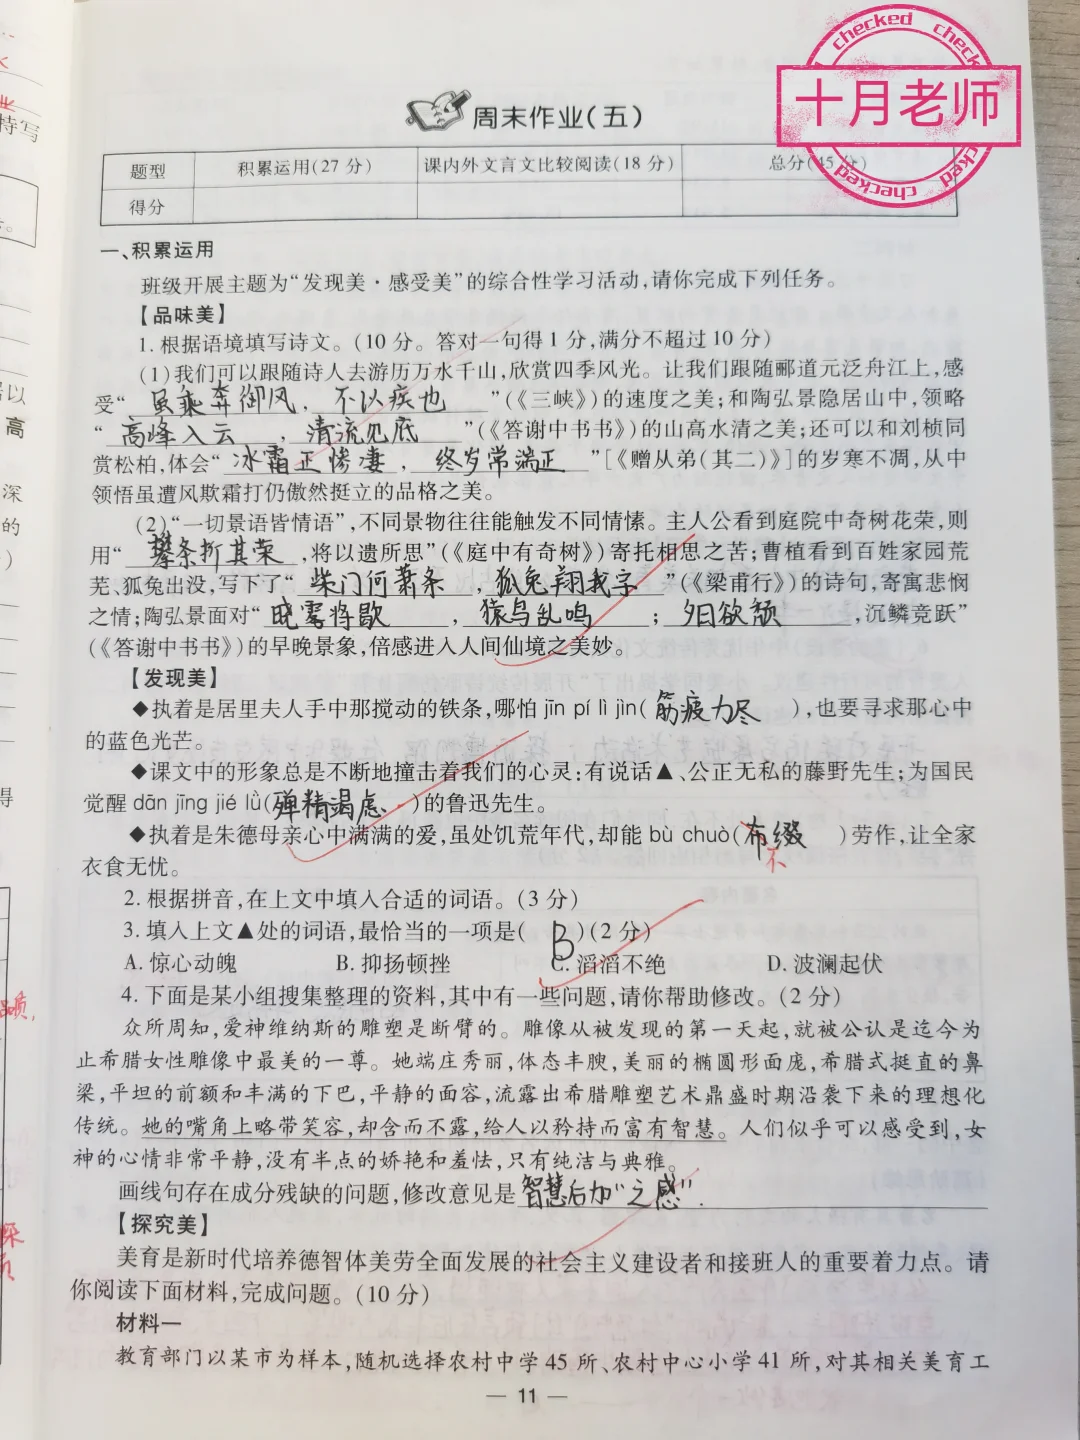 checked checked
十月老师
checked checked
特写
周末作业(五)
题型 积累运用(27分) 课内外文言文比较阅读(18分) 总分(45分)
得分
一、积累运用
班级开展主题为“发现美·感受美”的综合性学习活动,请你完成下列任务。
【品味美】
1.根据语境填写诗文。(10分。答对一句得1分,满分不超过10分)
(1)我们可以跟随诗人去游历万水千山,欣赏四季风光。让我们跟随郦道元泛舟江上,感
受“虽乘奔御风,不以疾也”(《三峡》)的速度之美;和陶弘景隐居山中,领略
“高峰入云,清流见底”(《答谢中书书》)的山高水清之美;还可以和刘桢同
赏松柏,体会“冰霜正惨凄,终岁常端正”[《赠从弟(其二)》]的岁寒不凋,从中
领悟虽遭风欺霜打仍傲然挺立的品格之美。
(2)“一切景语皆情语”,不同景物往往能触发不同情愫。主人公看到庭院中奇树花荣,则
用“攀条折其荣,将以遗所思”(《庭中有奇树》)寄托相思之苦;曹植看到百姓家园荒
芜、狐兔出没,写下了“柴门何萧条,狐兔翔我宇”(《梁甫行》)的诗句,寄寓悲悯
之情;陶弘景面对“晓雾将歇,猿鸟乱鸣;夕日欲颓,沉鳞竞跃”
(《答谢中书书》)的早晚景象,倍感进入人间仙境之美妙。
【发现美】
◆执着是居里夫人手中那搅动的铁条,哪怕 jīn pí lì jìn(筋疲力尽),也要寻求那心中
的蓝色光芒。
◆课文中的形象总是不断地撞击着我们的心灵:有说话▲、公正无私的藤野先生;为国民
觉醒 dān jīng jié lǜ(殚精竭虑)的鲁迅先生。
◆执着是朱德母亲心中满满的爱,虽处饥荒年代,却能 bù chuò(布缀)劳作,让全家
不
衣食无忧。
2.根据拼音,在上文中填入合适的词语。(3分)
3.填入上文▲处的词语,最恰当的一项是(B)(2分)
A.惊心动魄 B.抑扬顿挫 C.滔滔不绝 D.波澜起伏
4.下面是某小组搜集整理的资料,其中有一些问题,请你帮助修改。(2分)
众所周知,爱神维纳斯的雕塑是断臂的。雕像从被发现的第一天起,就被公认是迄今为
止希腊女性雕像中最美的一尊。她端庄秀丽,体态丰腴,美丽的椭圆形面庞,希腊式挺直的鼻
梁,平坦的前额和丰满的下巴,平静的面容,流露出希腊雕塑艺术鼎盛时期沿袭下来的理想化
传统。她的嘴角上略带笑容,却含而不露,给人以矜持而富有智慧。人们似乎可以感受到,女
神的心情非常平静,没有半点的娇艳和羞怯,只有纯洁与典雅。
画线句存在成分残缺的问题,修改意见是智慧后加“之感”.
【探究美】
美育是新时代培养德智体美劳全面发展的社会主义建设者和接班人的重要着力点。请
你阅读下面材料,完成问题。(10分)
材料一
教育部门以某市为样本,随机选择农村中学45所、农村中心小学41所,对其相关美育工
— 11 —